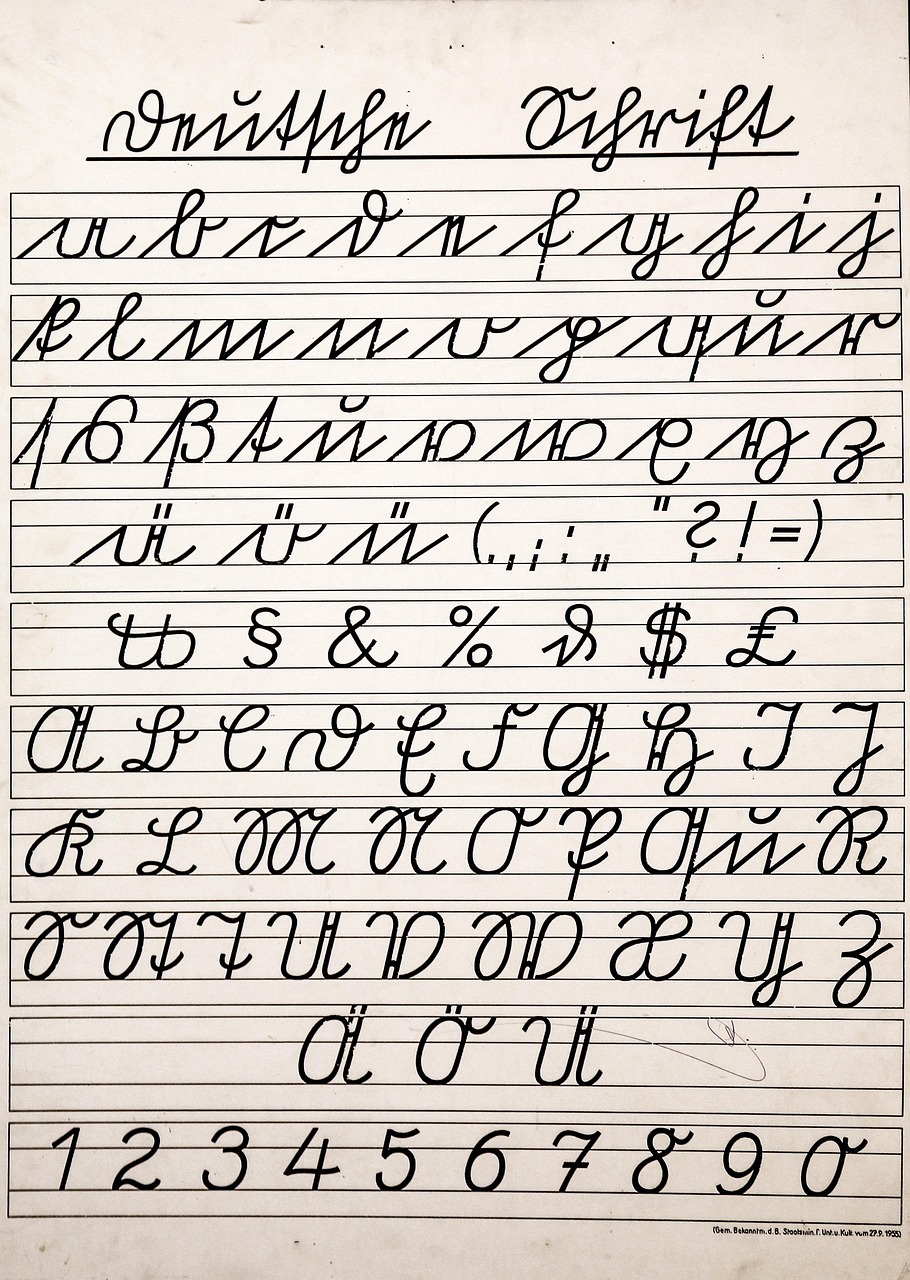 Deutsche Schrift
a b c d e f g h i j
k l m n o p qu r
ſ s ß t u v w x y z
ä ö ü ( . , ; : „ " ? ! = )
tz § & % ₰ $ £
A B C D E F G H I J
K L M N O P Qu R
S St T U V W X Y Z
Ä Ö Ü
1 2 3 4 5 6 7 8 9 0
(Gem. Bekanntm. d. B. Staatsmin. f. Unt. u. Kult. vom 27.9.1955)